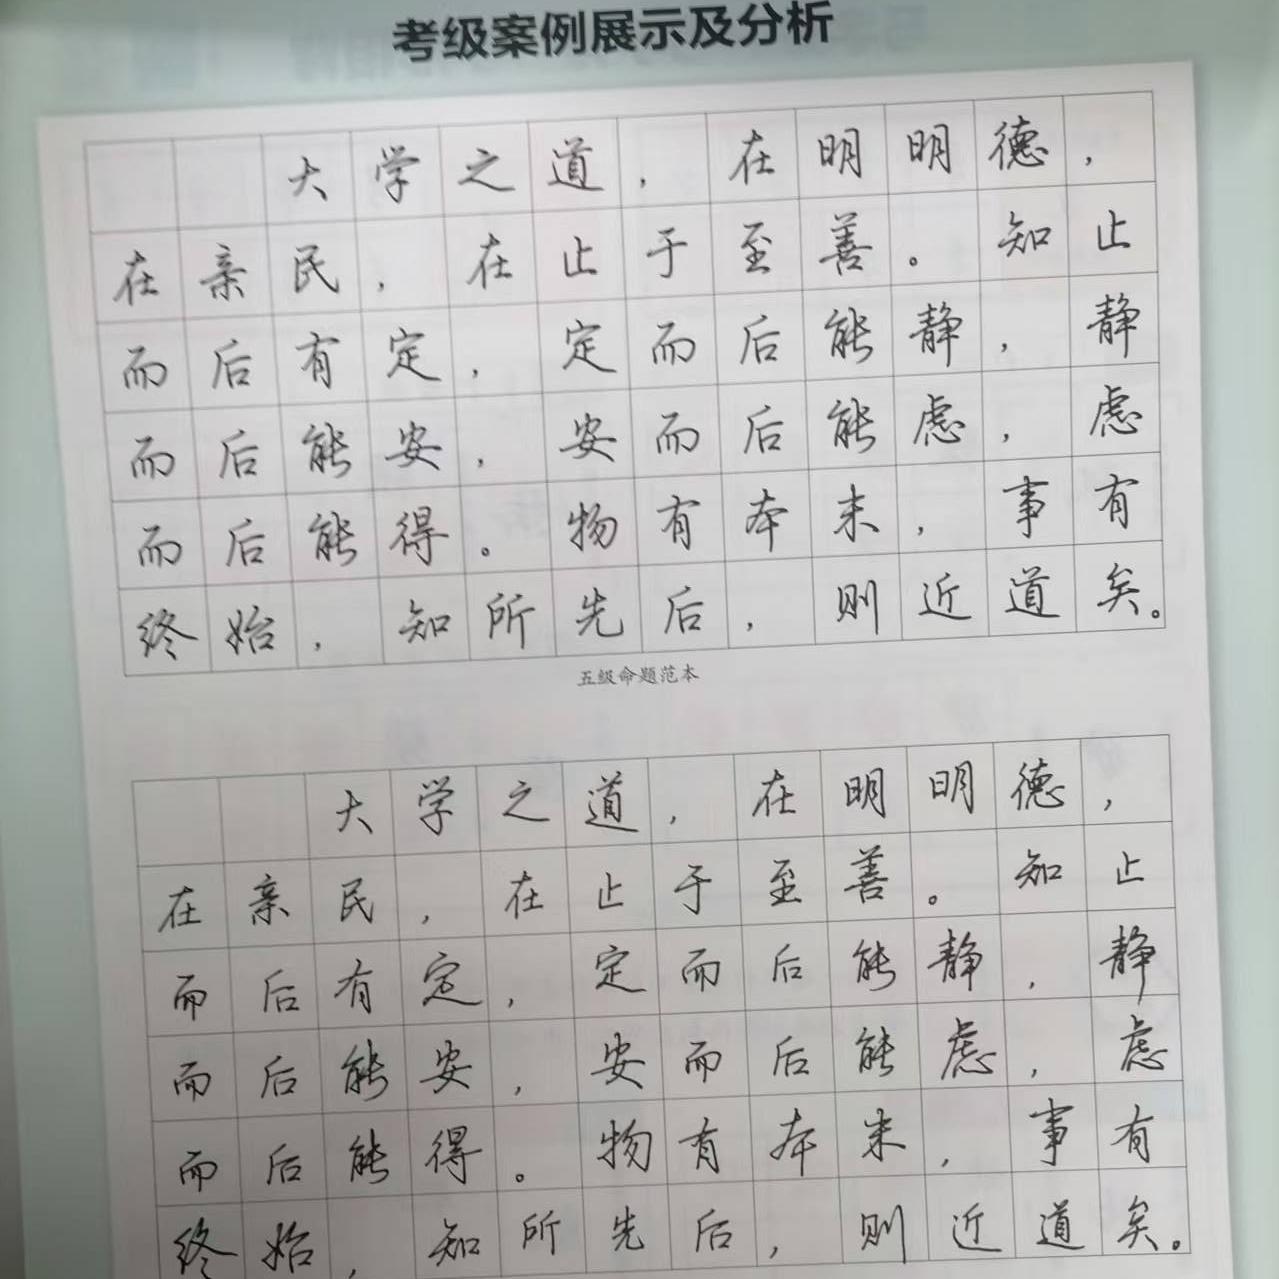 考级案例展示及分析
大学之道，在明明德，
在亲民，在止于至善。知止
而后有定，定而后能静，静
而后能安，安而后能虑，虑
而后能得。物有本末，事有
终始，知所先后，则近道矣。
五级命题范本
大学之道，在明明德，
在亲民，在止于至善。知止
而后有定，定而后能静，静
而后能安，安而后能虑，虑
而后能得。物有本末，事有
终始，知所先后，则近道矣。